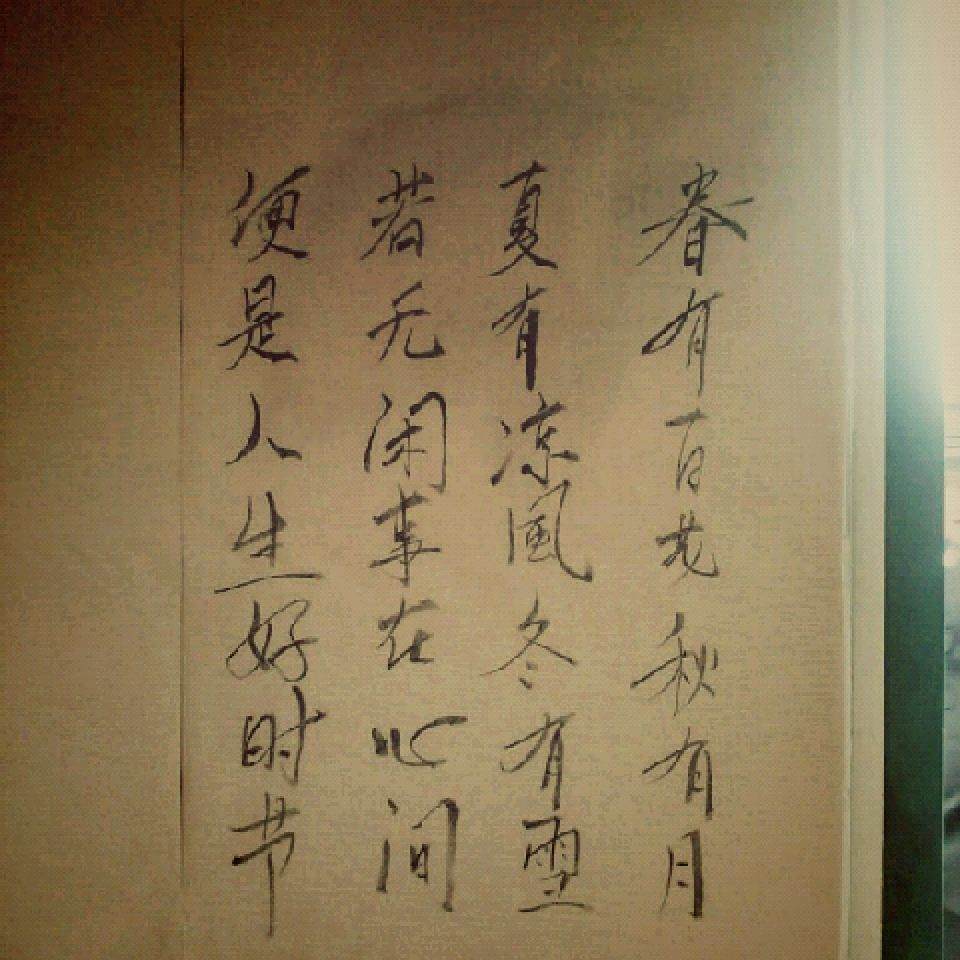 春有百花秋有月
夏有凉風冬有雪
若无闲事在心间
便是人生好时节